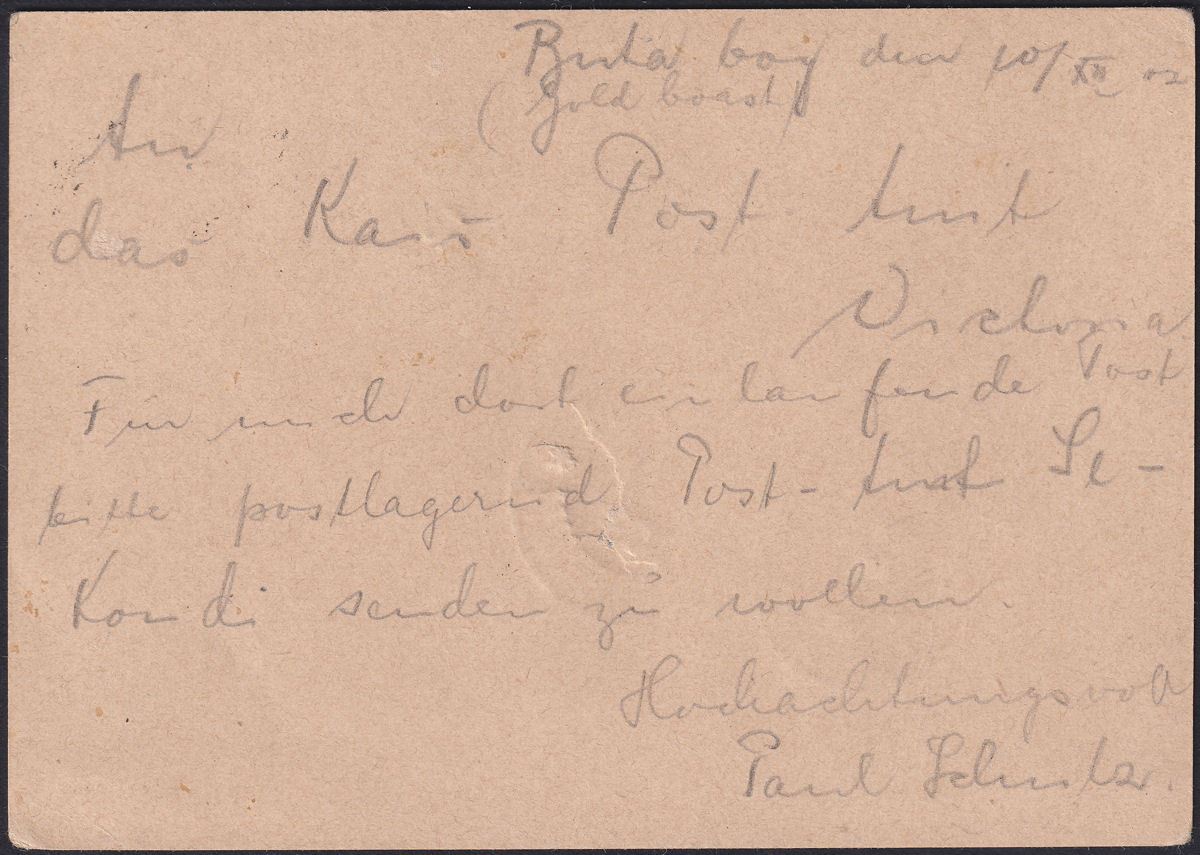 den 10/XII 02
(Gold boast)
An
das Kais Post Amt
Victoria
Für mich dort einlaufende Post
bitte postlagernd Post-Amt
senden zu wollen.
Hochachtungsvoll
Paul